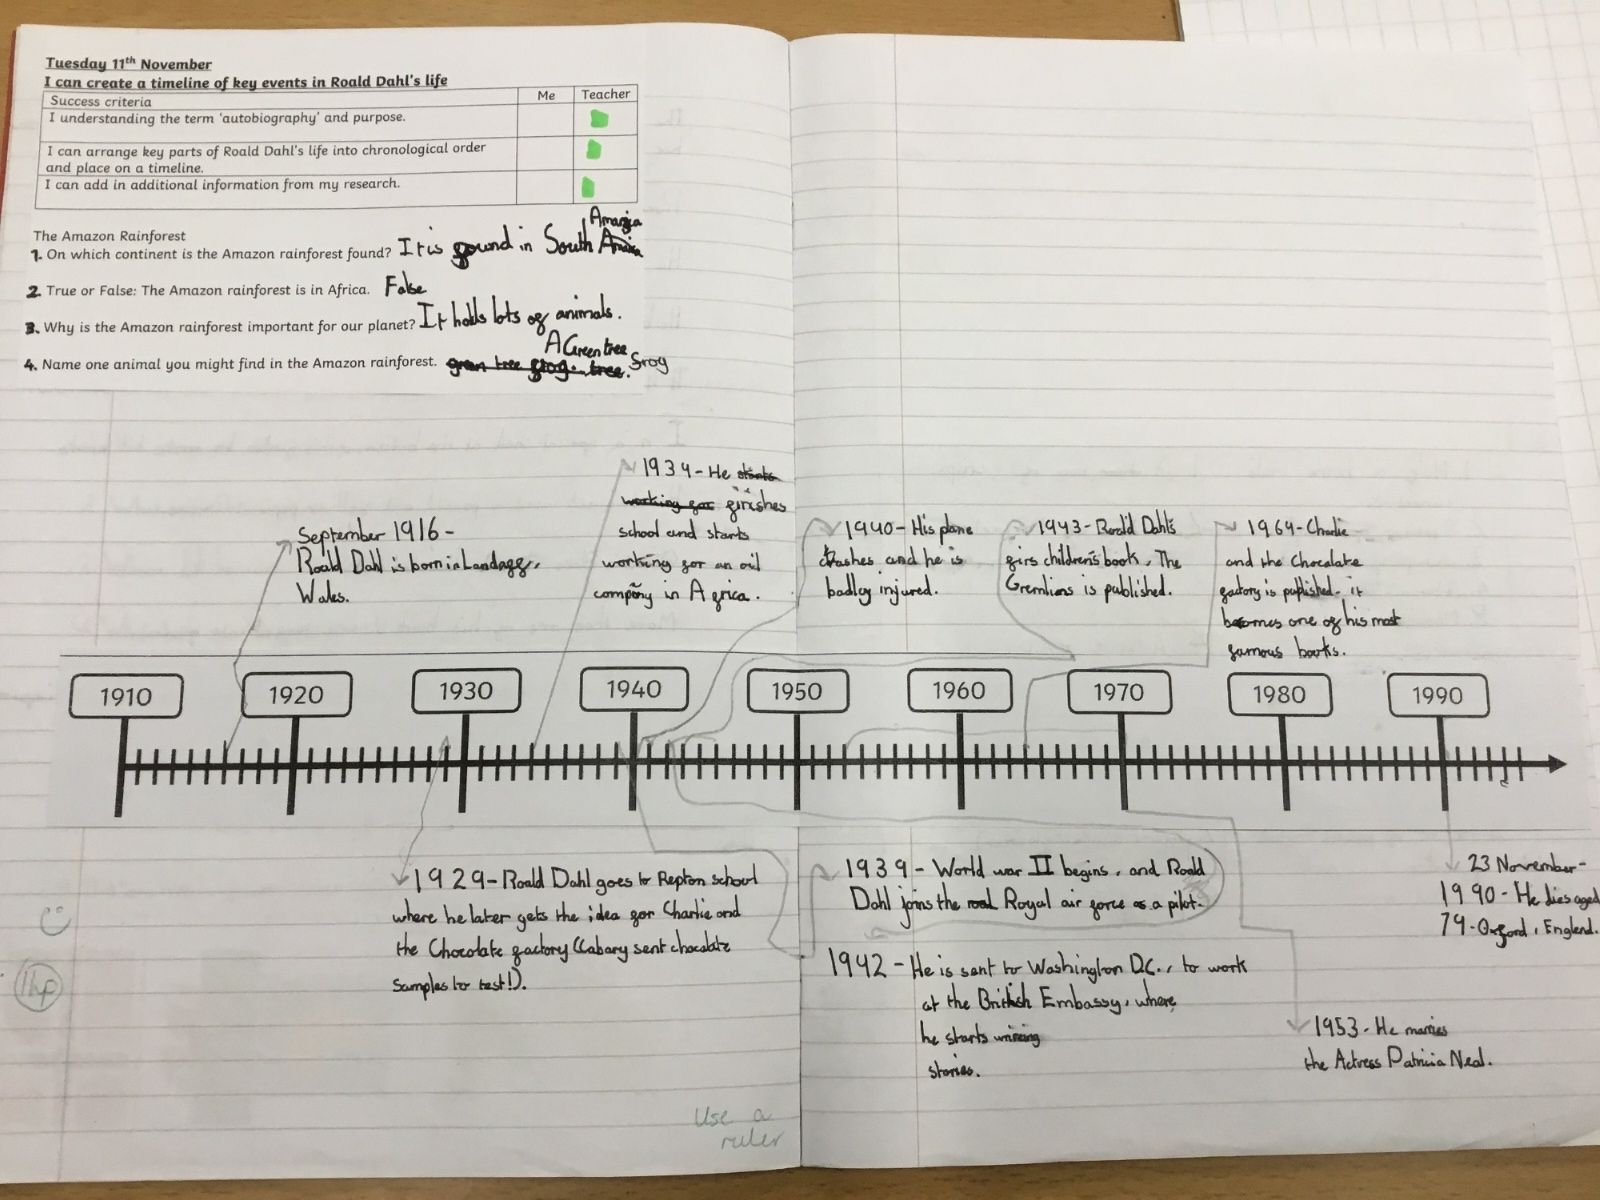 Tuesday 11th November
I can create a timeline of key events in Roald Dahl's life
Success criteria Me Teacher
I understanding the term 'autobiography' and purpose.
I can arrange key parts of Roald Dahl's life into chronological order
and place on a timeline.
I can add in additional information from my research.
The Amazon Rainforest
1. On which continent is the Amazon rainforest found? It is found in South
2. True or False: The Amazon rainforest is in Africa. False
3. Why is the Amazon rainforest important for our planet? It holds lots of animals.
4. Name one animal you might find in the Amazon rainforest. green tree frog. tree.
A Green tree
frog
September 1916 -
Roald Dahl is born in Landaff,
Wales.
1934 - He starts
working for finishes
school and starts
working for an oil
company in Africa.
1940 - His plane
crashes and he is
badley injured.
1943 - Roald Dahl's
firs children's book, The
Gremlins is published.
1964 - Charlie
and the Chocolate
factory is published. it
becomes one of his most
famous books.
1910 1920 1930 1940 1950 1960 1970 1980 1990
1929 - Roald Dahl goes to Repton school
where he later gets the idea for Charlie and
the Chocolate factory (Cabary sent chocolate
samples to test!).
1939 - World war II begins, and Roald
Dahl joins the Royal air force as a pilot.
1942 - He is sent to Washington D.C., to work
at the British Embassy, where
he starts
stories.
23 November -
1990 - He dies aged
74 - Oxford, England.
1953 - He marries
the Actress Patricia Neal.
1hp
Use a
ruler